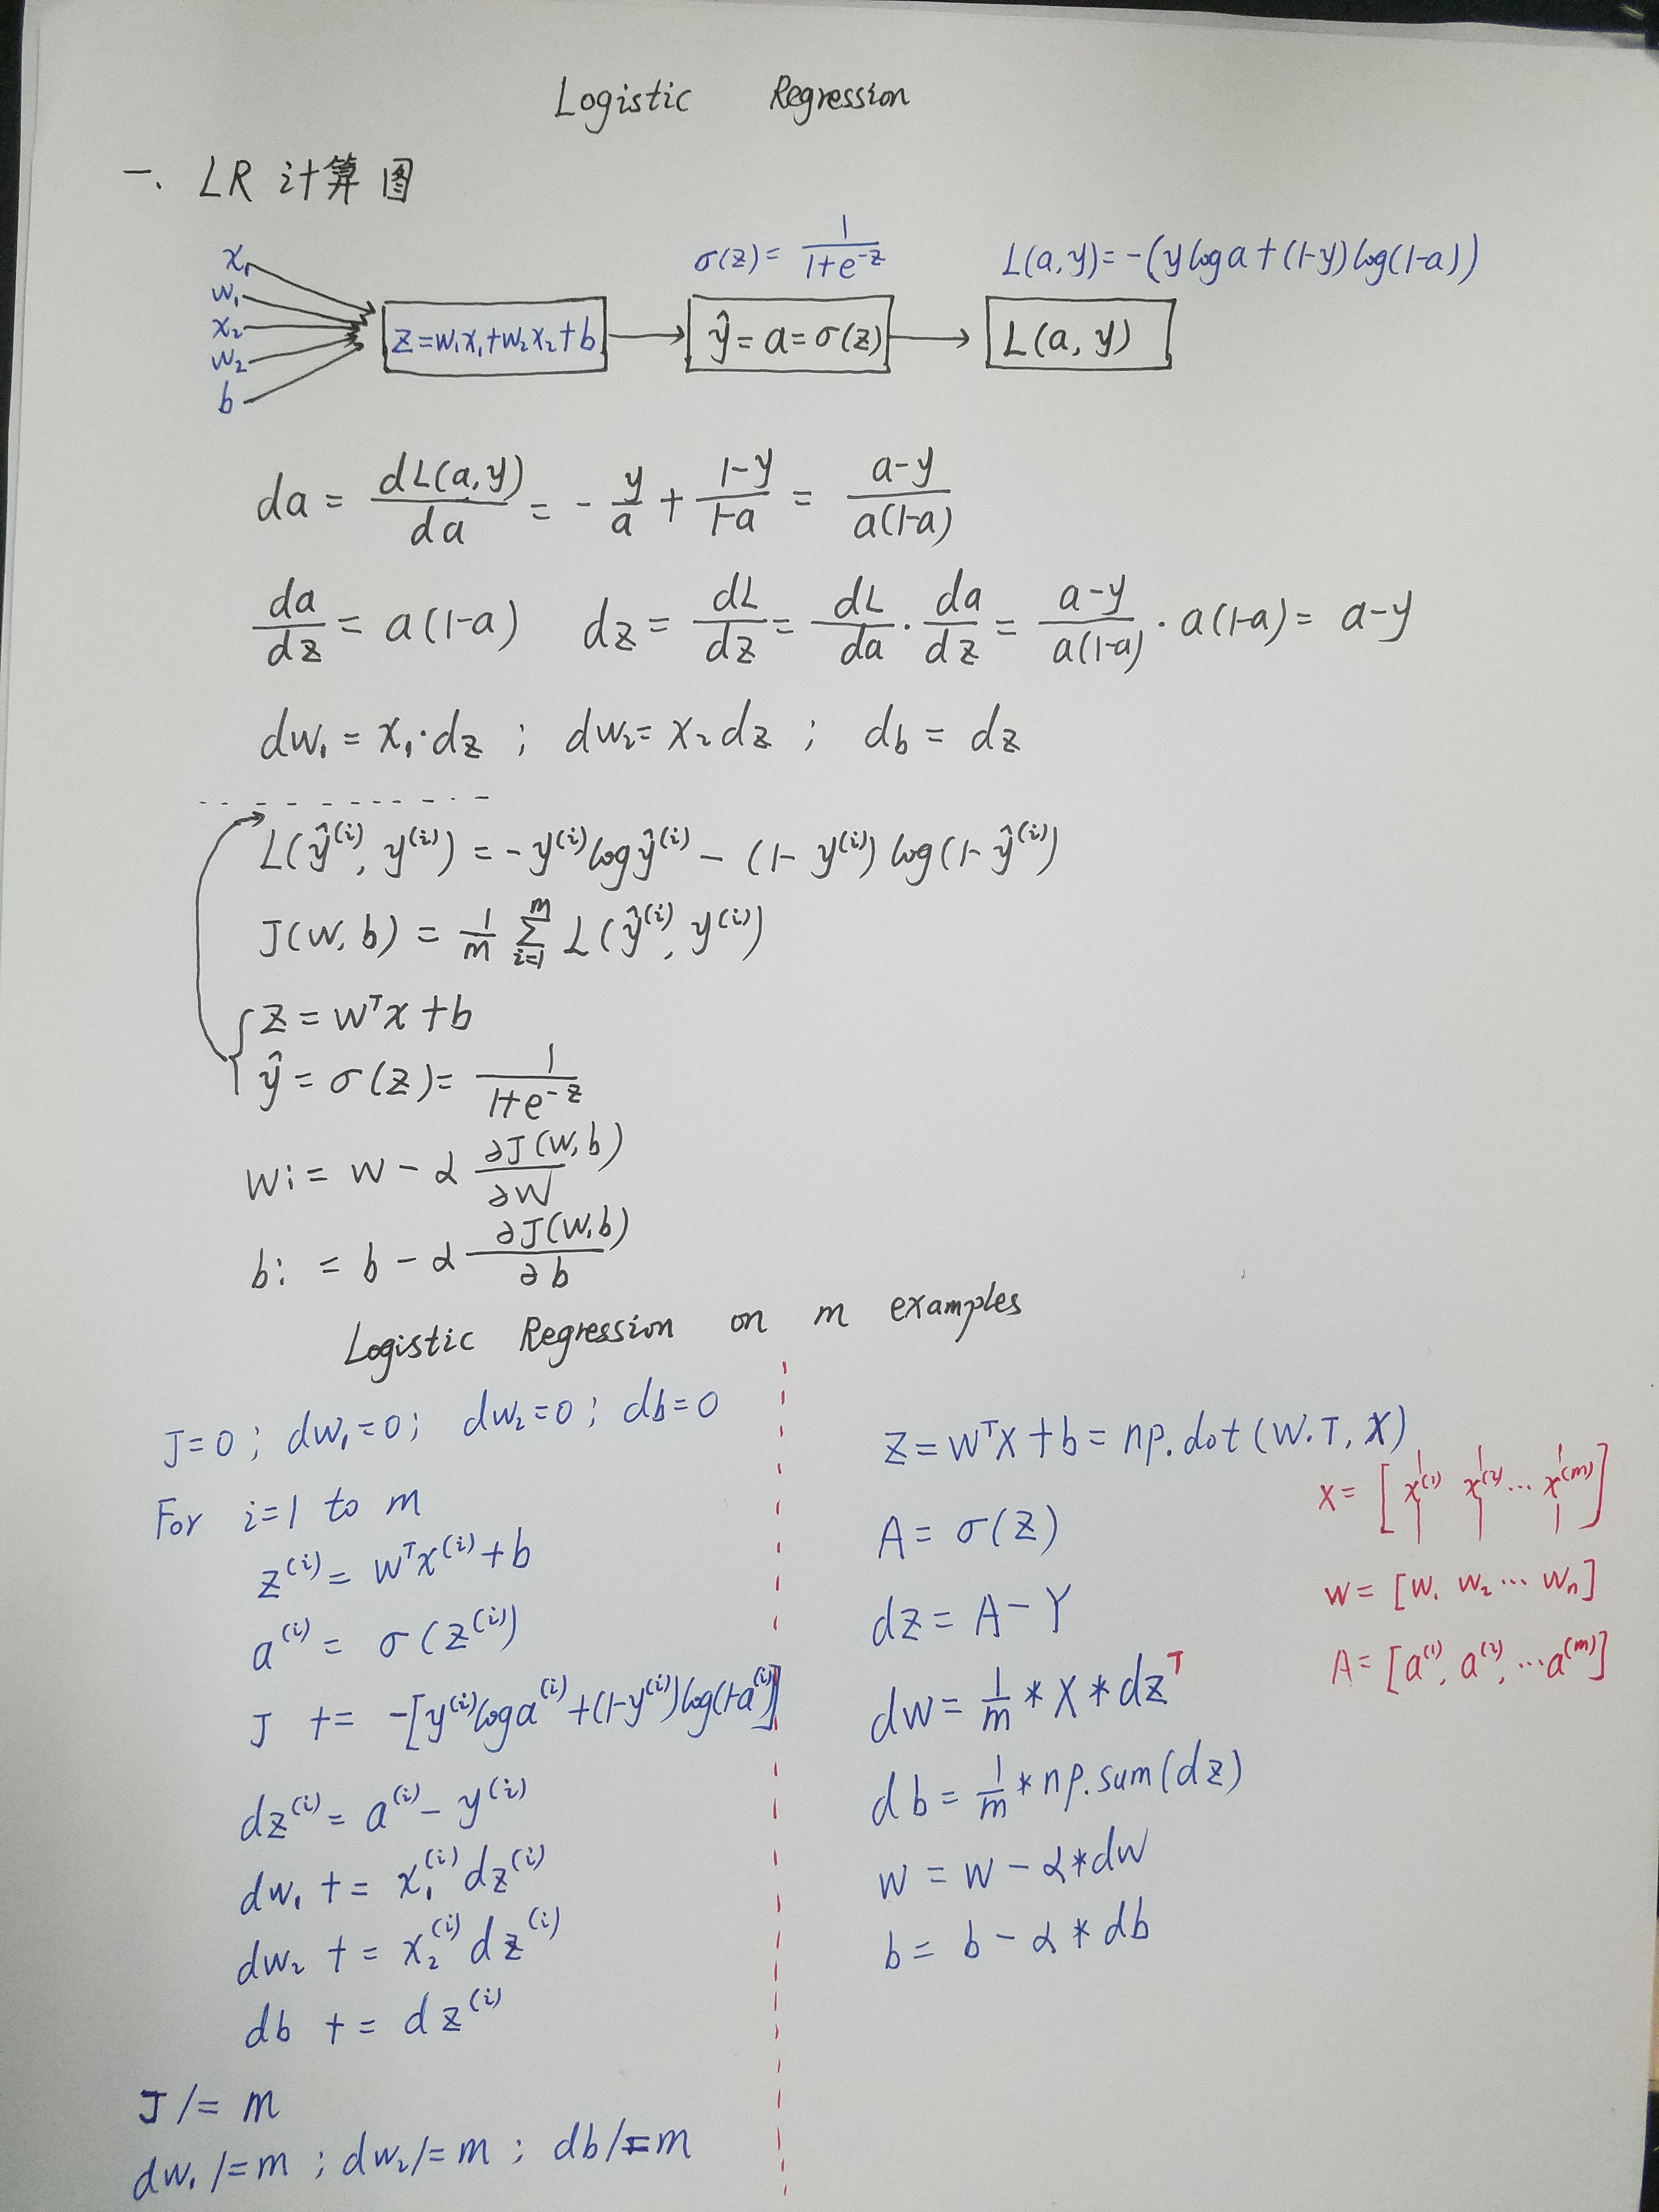 Logistic Regression
一、LR 计算图
σ(z) = 1/(1+e^{-z})
L(a,y) = -(y log a + (1-y) log(1-a))
x₁
w₁
x₂
w₂
b
z=w₁x₁+w₂x₂+b
ŷ = a = σ(z)
L(a, y)
da = dL(a,y)/da = -y/a + (1-y)/(1-a) = (a-y)/(a(1-a))
da/dz = a(1-a) dz = dL/dz = dL/da · da/dz = (a-y)/(a(1-a)) · a(1-a) = a-y
dw₁ = x₁·dz ; dw₂ = x₂ dz ; db = dz
L(ŷ^{(i)}, y^{(i)}) = -y^{(i)} log ŷ^{(i)} - (1- y^{(i)}) log(1-ŷ^{(i)})
J(w, b) = 1/m Σ_{i=1}^{m} L(ŷ^{(i)}, y^{(i)})
z = w^T x + b
ŷ = σ(z) = 1/(1+e^{-z})
w := w - α ∂J(w,b)/∂w
b := b - α ∂J(w,b)/∂b
Logistic Regression on m examples
J=0 ; dw₁=0 ; dw₂=0 ; db=0
For i=1 to m
z^{(i)} = w^T x^{(i)} + b
a^{(i)} = σ(z^{(i)})
J += -[y^{(i)} log a^{(i)} + (1-y^{(i)}) log(1-a^{(i)})]
dz^{(i)} = a^{(i)} - y^{(i)}
dw₁ += x₁^{(i)} dz^{(i)}
dw₂ += x₂^{(i)} dz^{(i)}
db += dz^{(i)}
J /= m
dw₁ /= m ; dw₂ /= m ; db /= m
Z = W^T X + b = np.dot(W.T, X)
A = σ(Z)
dz = A - Y
dw = 1/m * X * dz^T
db = 1/m * np.sum(dz)
w = w - α * dw
b = b - α * db
X = [x^{(1)} x^{(2)} ... x^{(m)}]
w = [w₁ w₂ ... wₙ]
A = [a^{(1)}, a^{(2)}, ... a^{(m)}]